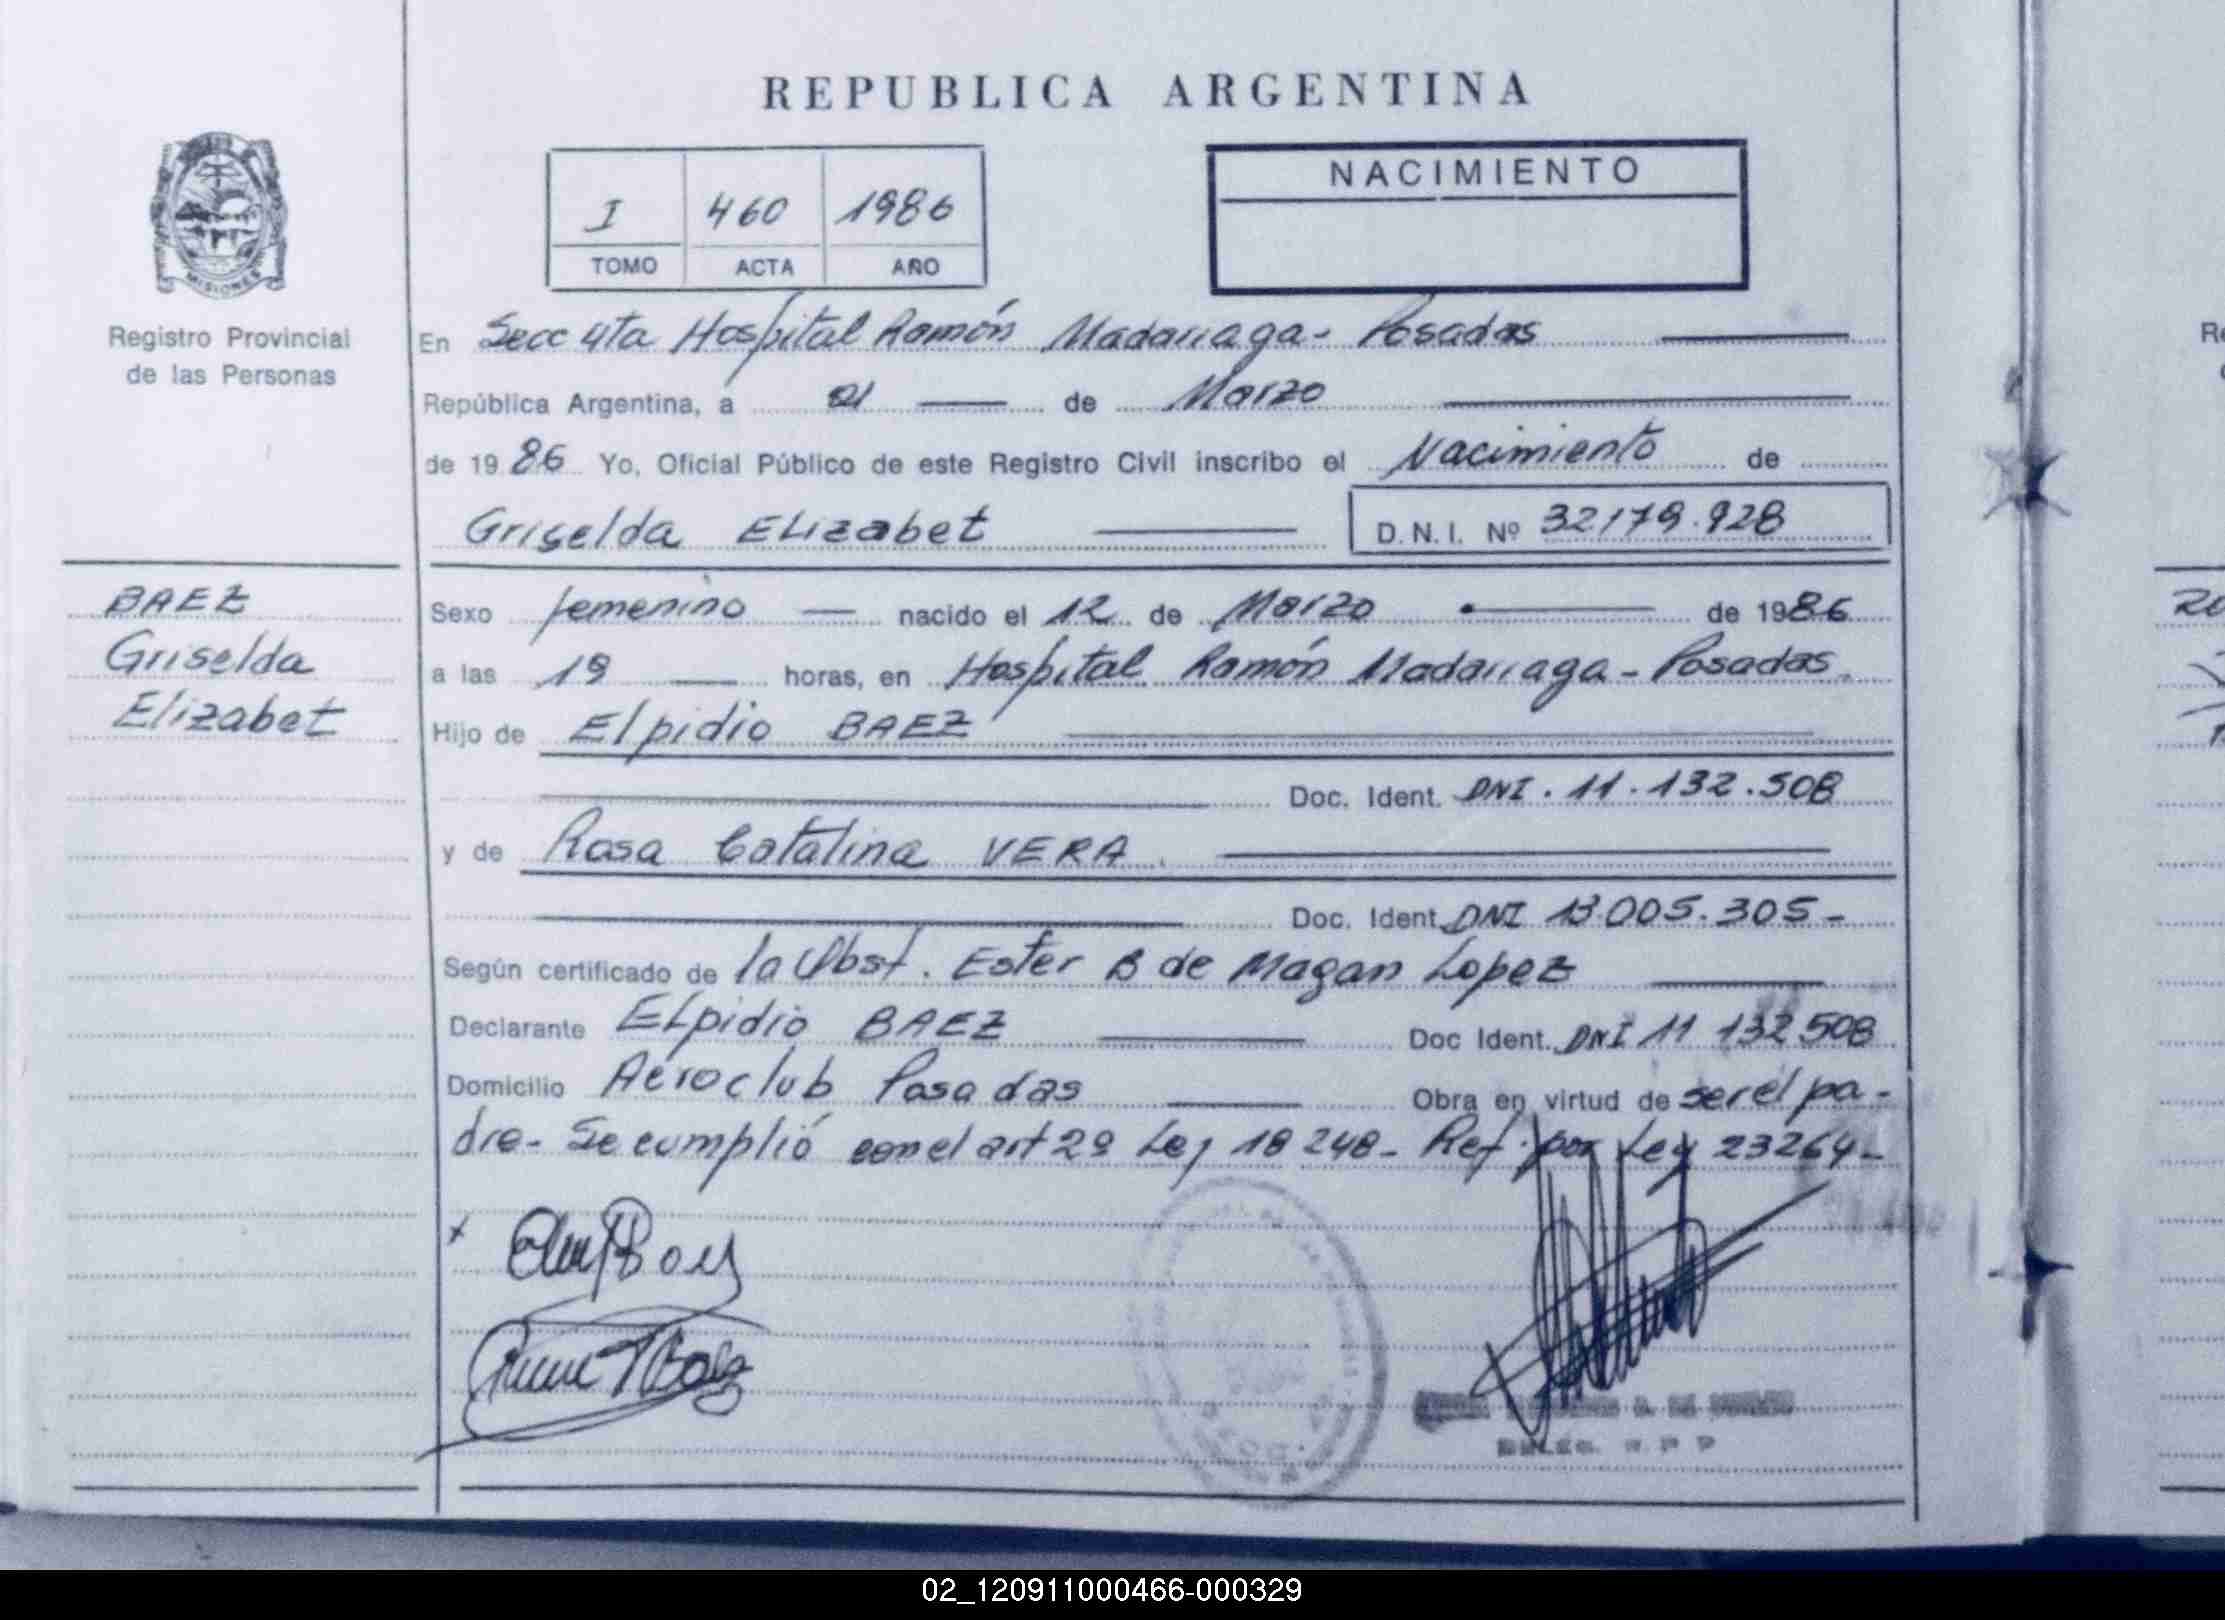 REPUBLICA ARGENTINA
I 460 1986
TOMO ACTA AÑO
NACIMIENTO
MISIONES
Registro Provincial
de las Personas
En Secc 4ta Hospital Ramón Madariaga - Posadas
República Argentina, a de Marzo
de 1986 Yo, Oficial Público de este Registro Civil inscribo el Nacimiento de
Griselda ELizabet D.N.I. Nº 32.179.928
BAEZ
Griselda
Elizabet
Sexo femenino nacido el 12 de Marzo de 1986
a las 19 horas, en Hospital Ramón Madariaga - Posadas.
Hijo de Elpidio BAEZ
Doc. Ident. DNI. 11.132.508
y de Rosa Catalina VERA.
Doc. Ident. DNI 13.005.305-
Según certificado de la Obst. Ester B de Magan Lopez
Declarante ELpidio BAEZ Doc Ident. DNI 11 132 508
Domicilio Aeroclub Posadas Obra en virtud de ser el pa-
dre- Se cumplió con el art 2º Ley 18 248- Ref. por Ley 23264-
02_120911000466-000329